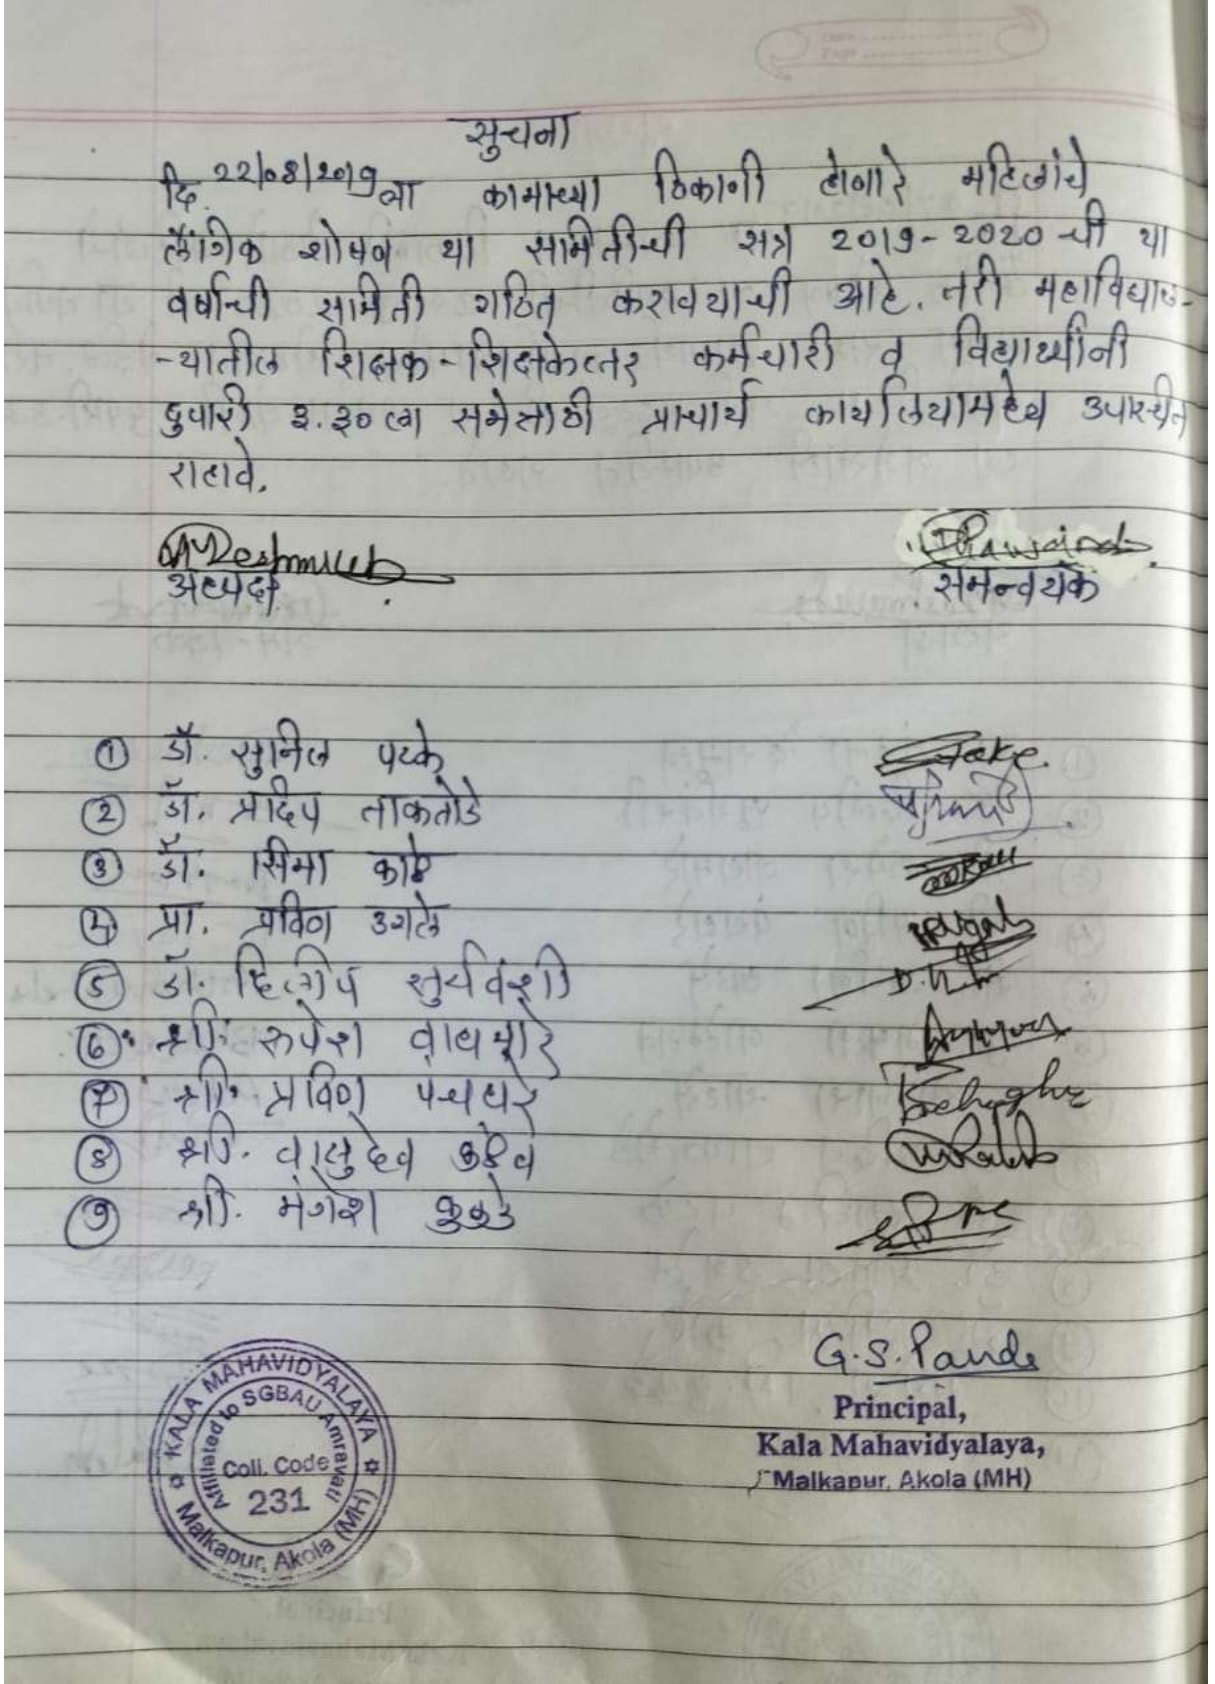 सुचना
दि. 22/08/2019 ला कामाच्या ठिकाणी होणारे महिलांचे
लैंगिक शोषण या समितीची सत्र 2019-2020 ची या
वर्षाची समिती गठित करावयाची आहे. तरी महाविद्याल-
-यातील शिक्षक-शिक्षकेत्तर कर्मचारी व विद्यार्थ्यांनी
दुपारी ३.३० ला सभेसाठी प्राचार्य कार्यालयामध्ये उपस्थित
राहावे.
अध्यक्ष समन्वयक
① डॉ. सुनिल पटके
② डॉ. प्रदिप ताकतोडे
③ डॉ. सिमा काळे
④ प्रा. प्रविण उगले
⑤ डॉ. दिलीप सुर्यवंशी
⑥ श्री. रुपेश वाघमारे
⑦ श्री. प्रविण पंचघरे
⑧ श्री. वासुदेव
⑨ श्री. मंगेश
G.S. Pande
Principal,
Kala Mahavidyalaya,
Malkapur, Akola (MH)
KALA MAHAVIDYALAYA
Affiliated to SGBAU Amravati
Coll. Code
231
Malkapur, Akola (MH)